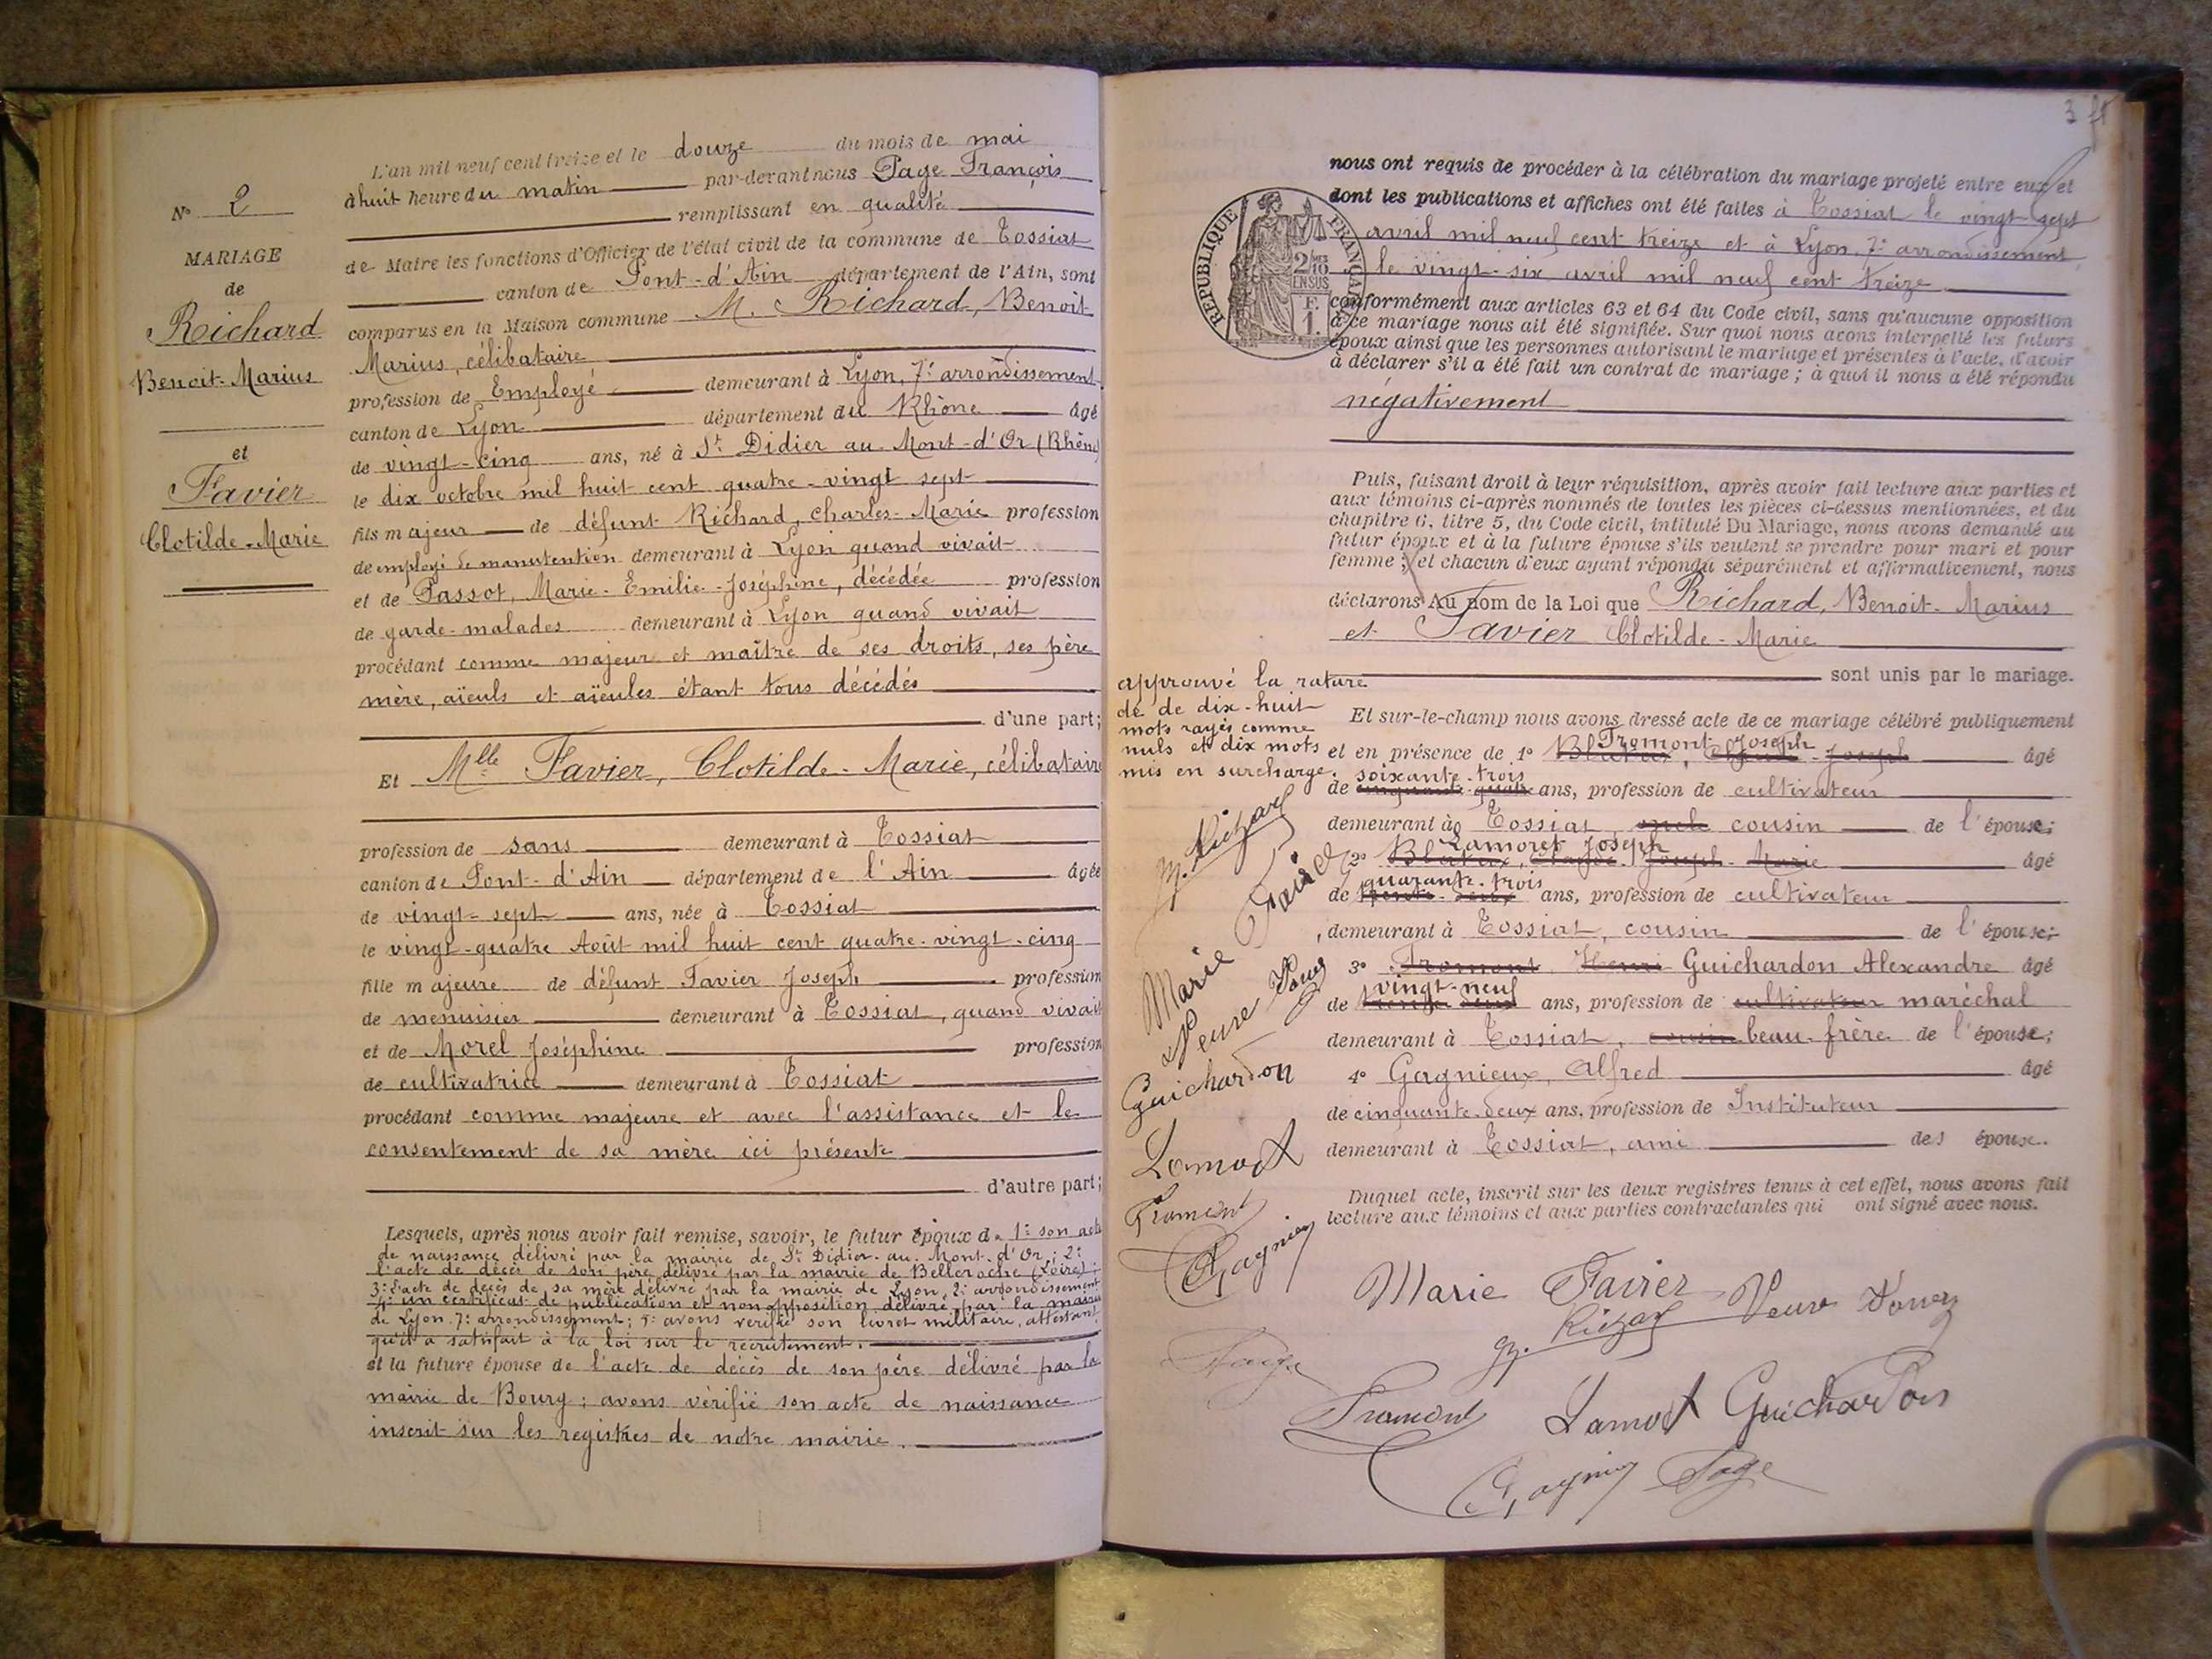 N° 2
MARIAGE
de
Richard
Benoit-Marius
et
Favier
Clotilde-Marie
L'an mil neuf cent treize et le douze du mois de mai
à huit heure du matin par-devant nous Page François
remplissant en qualité
de Maire les fonctions d'Officier de l'état civil de la commune de Tossiat
canton de Pont-d'Ain département de l'Ain, sont
comparus en la Maison commune M. Richard, Benoit
Marius, célibataire
profession de Employé demeurant à Lyon, 7e arrondissement
canton de Lyon département du Rhône âgé
de vingt-cinq ans, né à St Didier au Mont-d'Or (Rhône)
le dix octobre mil huit cent quatre-vingt sept
fils majeur de défunt Richard, Charles-Marie profession
de employé de manutention demeurant à Lyon quand vivait
et de Passot, Marie-Emilie-Joséphine, décédée profession
de garde-malades demeurant à Lyon quand vivait
procédant comme majeur et maître de ses droits, ses père
mère, aïeuls et aïeules étant tous décédés
d'une part;
Et Mlle Favier, Clotilde-Marie, célibataire
profession de sans demeurant à Tossiat
canton de Pont-d'Ain département de l'Ain âgée
de vingt-sept ans, née à Tossiat
le vingt-quatre Août mil huit cent quatre-vingt-cinq
fille majeure de défunt Favier Joseph profession
de menuisier demeurant à Tossiat, quand vivait
et de Morel Joséphine profession
de cultivatrice demeurant à Tossiat
procédant comme majeure et avec l'assistance et le
consentement de sa mère ici présente
d'autre part;
Lesquels, après nous avoir fait remise, savoir, le futur époux de 1° son acte
de naissance délivré par la mairie de St Didier-au-Mont-d'Or; 2°
l'acte de décès de son père délivré par la mairie de Belleroche (Loire);
3° l'acte de décès de sa mère délivré par la mairie de Lyon, 2e arrondissement
4° un certificat de publication et non opposition délivré par la mairie
de Lyon 7e arrondissement; 5° avons vérifié son livret militaire, attestant
qu'il a satisfait à la loi sur le recrutement.
et la future épouse de l'acte de décès de son père délivré par la
mairie de Bourg; avons vérifié son acte de naissance
inscrit sur les registres de notre mairie.
3
RÉPUBLIQUE FRANÇAISE
2/10
EN SUS
F.
1.
nous ont requis de procéder à la célébration du mariage projeté entre eux et
dont les publications et affiches ont été faites à Tossiat le vingt-sept
avril mil neuf cent treize et à Lyon, 7e arrondissement
le vingt-six avril mil neuf cent treize
conformément aux articles 63 et 64 du Code civil, sans qu'aucune opposition
à ce mariage nous ait été signifiée. Sur quoi nous avons interpellé les futurs
époux ainsi que les personnes autorisant le mariage et présentes à l'acte, d'avoir
à déclarer s'il a été fait un contrat de mariage; à quoi il nous a été répondu
négativement
Puis, faisant droit à leur réquisition, après avoir fait lecture aux parties et
aux témoins ci-après nommés de toutes les pièces ci-dessus mentionnées, et du
chapitre 6, titre 5, du Code civil, intitulé Du Mariage, nous avons demandé au
futur époux et à la future épouse s'ils veulent se prendre pour mari et pour
femme; et chacun d'eux ayant répondu séparément et affirmativement, nous
déclarons Au nom de la Loi que Richard, Benoit-Marius
et Favier Clotilde-Marie
sont unis par le mariage.
approuvé la rature
de de dix-huit
mots rayés comme
nuls et dix mots
mis en surcharge.
Et sur-le-champ nous avons dressé acte de ce mariage célébré publiquement
Fromont Joseph
et en présence de 1° Joseph âgé
soixante-trois
de cinquante-quatre ans, profession de cultivateur
demeurant à Tossiat, oncle cousin de l'épouse;
Lamoret Joseph
2° Joseph-Marie âgé
quarante-trois
de trente-deux ans, profession de cultivateur
demeurant à Tossiat, cousin de l'épouse;
3° Fromont Henri Guichardon Alexandre âgé
vingt-neuf
de trente deux ans, profession de cultivateur maréchal
demeurant à Tossiat, cousin beau-frère de l'épouse;
4° Gagnieux, Alfred âgé
de cinquante-deux ans, profession de Instituteur
demeurant à Tossiat, ami des époux.
Duquel acte, inscrit sur les deux registres tenus à cet effet, nous avons fait
lecture aux témoins et aux parties contractantes qui ont signé avec nous.
Richard
Marie Favier
Veuve
Guichardon
Lamoret
Fromont
Gagnieux
Page
Marie Favier
Richard
Veuve
Fromont Lamoret Guichardon
Gagnieux Page